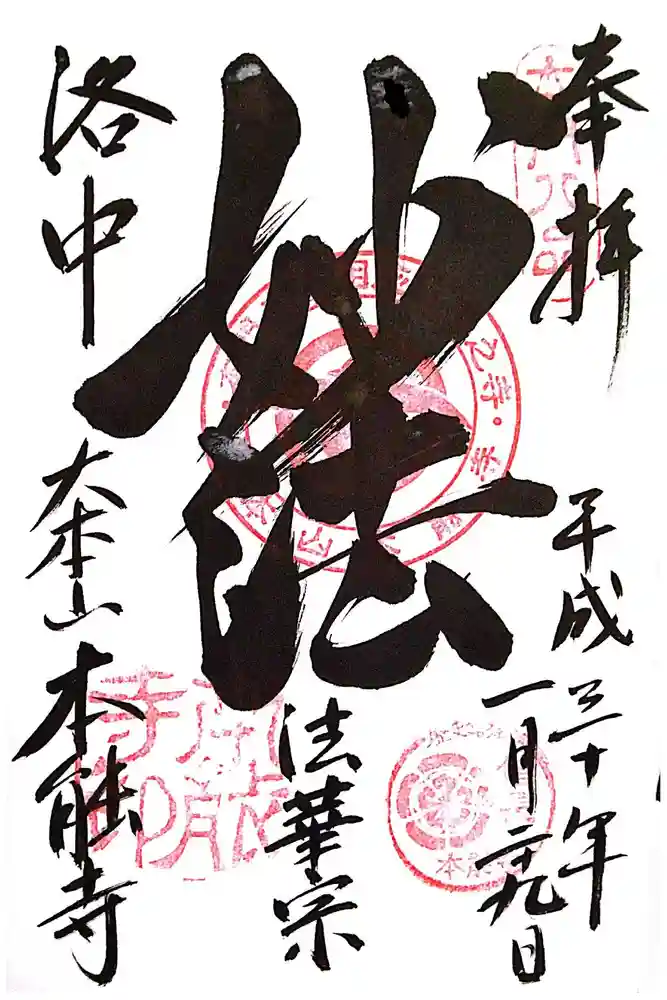 奉拝
平成三十年
一月二十九日
妙法
法華宗
洛中
大本山本能寺
本能寺